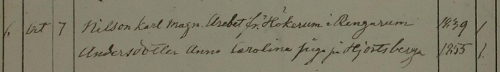 6 Oct 7 Nilson Karl Magn. Arebet. fr. Hökerum i Rengarum 1829 /
Andersdotter Anna Carolina piga på Hjortsberga 1855 /.